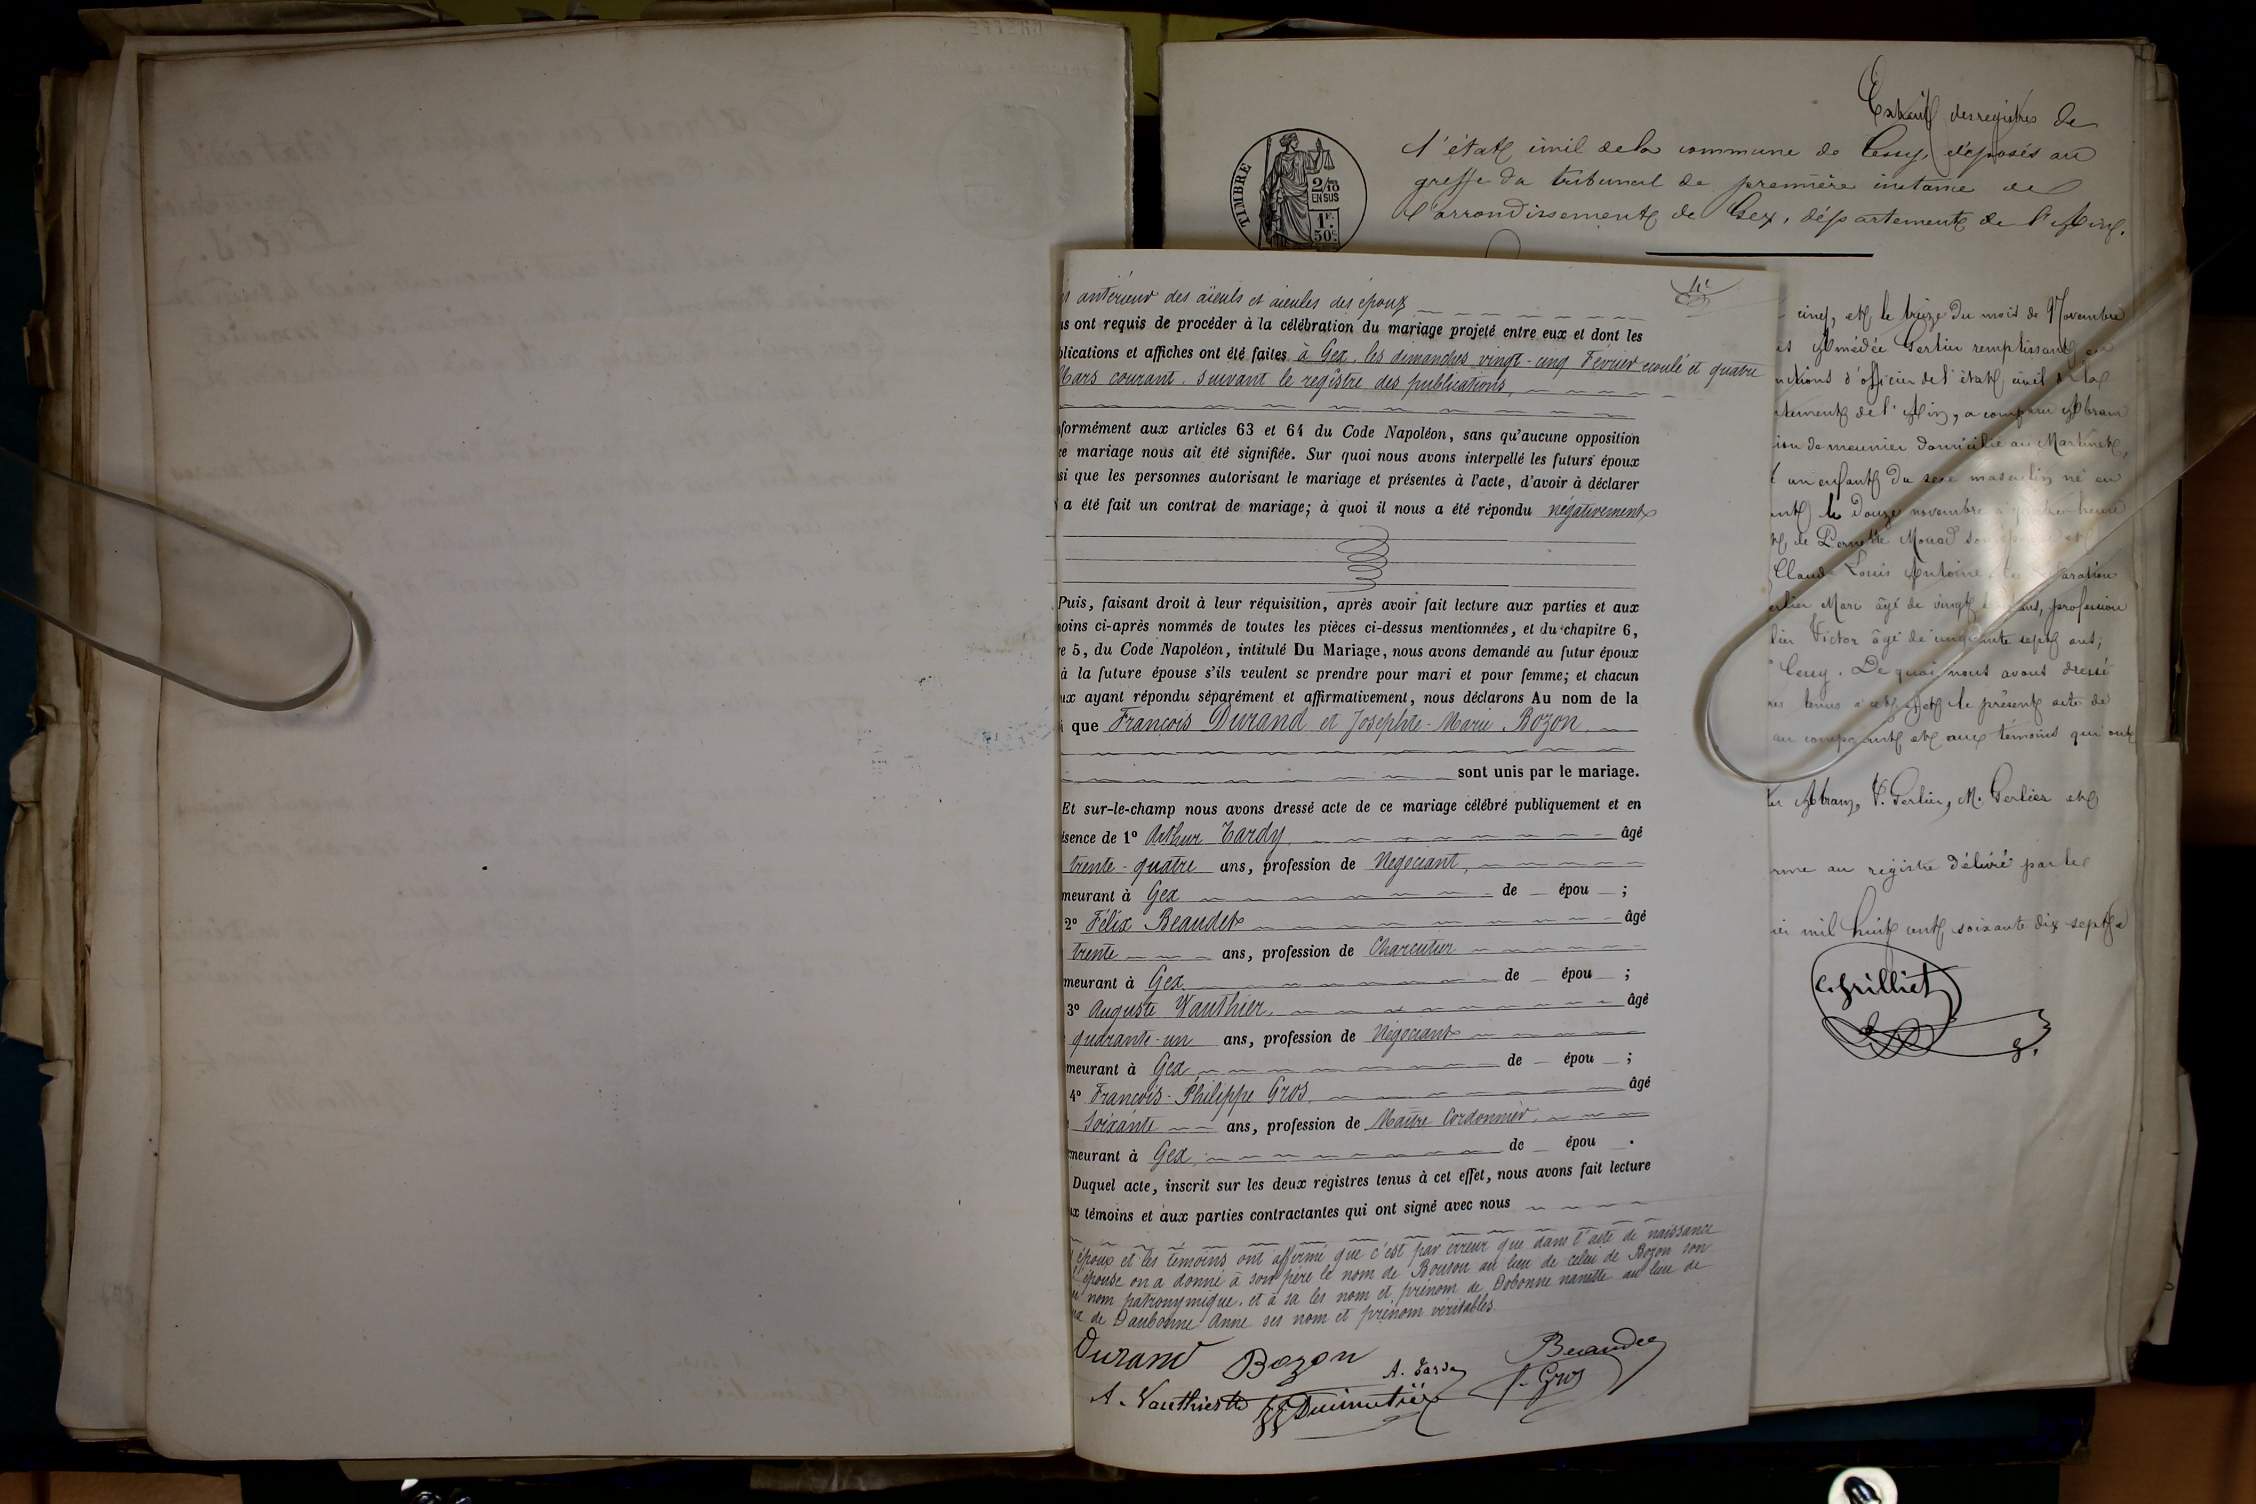 Extrait des registres de
l'état civil de la commune de Cessy, déposés au
greffe du tribunal de première instance de
l'arrondissement de Gex, département de l'Ain.
TIMBRE
2/10
EN SUS
1F.
50c
antérieur des aïeuls et aïeules des époux
ont requis de procéder à la célébration du mariage projeté entre eux et dont les
blications et affiches ont été faites à Gex, les dimanches vingt-cinq Février écoulé et quatre
Mars courant, suivant le registre des publications,
formément aux articles 63 et 64 du Code Napoléon, sans qu'aucune opposition
ce mariage nous ait été signifiée. Sur quoi nous avons interpellé les futurs époux
si que les personnes autorisant le mariage et présentes à l'acte, d'avoir à déclarer
a été fait un contrat de mariage; à quoi il nous a été répondu négativement
Puis, faisant droit à leur réquisition, après avoir fait lecture aux parties et aux
moins ci-après nommés de toutes les pièces ci-dessus mentionnées, et du chapitre 6,
e 5, du Code Napoléon, intitulé Du Mariage, nous avons demandé au futur époux
à la future épouse s'ils veulent se prendre pour mari et pour femme; et chacun
ux ayant répondu séparément et affirmativement, nous déclarons Au nom de la
i que François Durand et Josephte-Marie Bozon
sont unis par le mariage.
Et sur-le-champ nous avons dressé acte de ce mariage célébré publiquement et en
ésence de 1º Arthur Tardy âgé
trente-quatre ans, profession de Négociant,
meurant à Gex de épou ;
2º Félix Beaudet âgé
trente ans, profession de Charcutier
meurant à Gex de épou ;
3º Auguste Vauthier, âgé
quarante-un ans, profession de Négociant
meurant à Gex de épou ;
4º François-Philippe Gros âgé
Soixante ans, profession de Maître Cordonnier,
meurant à Gex, de épou .
Duquel acte, inscrit sur les deux registres tenus à cet effet, nous avons fait lecture
ux témoins et aux parties contractantes qui ont signé avec nous
époux et les témoins ont affirmé que c'est par erreur que dans l'acte de naissance
l'épouse on a donné à son père le nom de Bouson au lieu de celui de Bozon son
nom patronymique, et à sa les nom et prénom de Dobonne nanette au lieu de
de Daubonne Anne ses nom et prénom véritables.
Durand Bozon A. Tardy Beaudet
A. Vauthier F. Gros
cinq, et le treize du mois de Novembre
Amédée Gerlier remplissant
nctions d'officier de l'état civil de la
tement de l'Ain, a comparu Abram
ion de meunier domicilié au Martinet,
un enfant du sexe masculin né
le douze novembre
de Pernette
Claude Louis Antoine,
erlier Marc âgé de vingt ans, profession
lier Victor âgé de cinquante sept ans,
Cessy. De quoi nous avons dressé
tenus à cet effet le présent acte de
au comparant et aux témoins qui ont
Abram, V. Gerlier, M. Gerlier et
rme au registre délivré par le
mil huit cent soixante dix sept
C. Grilliet